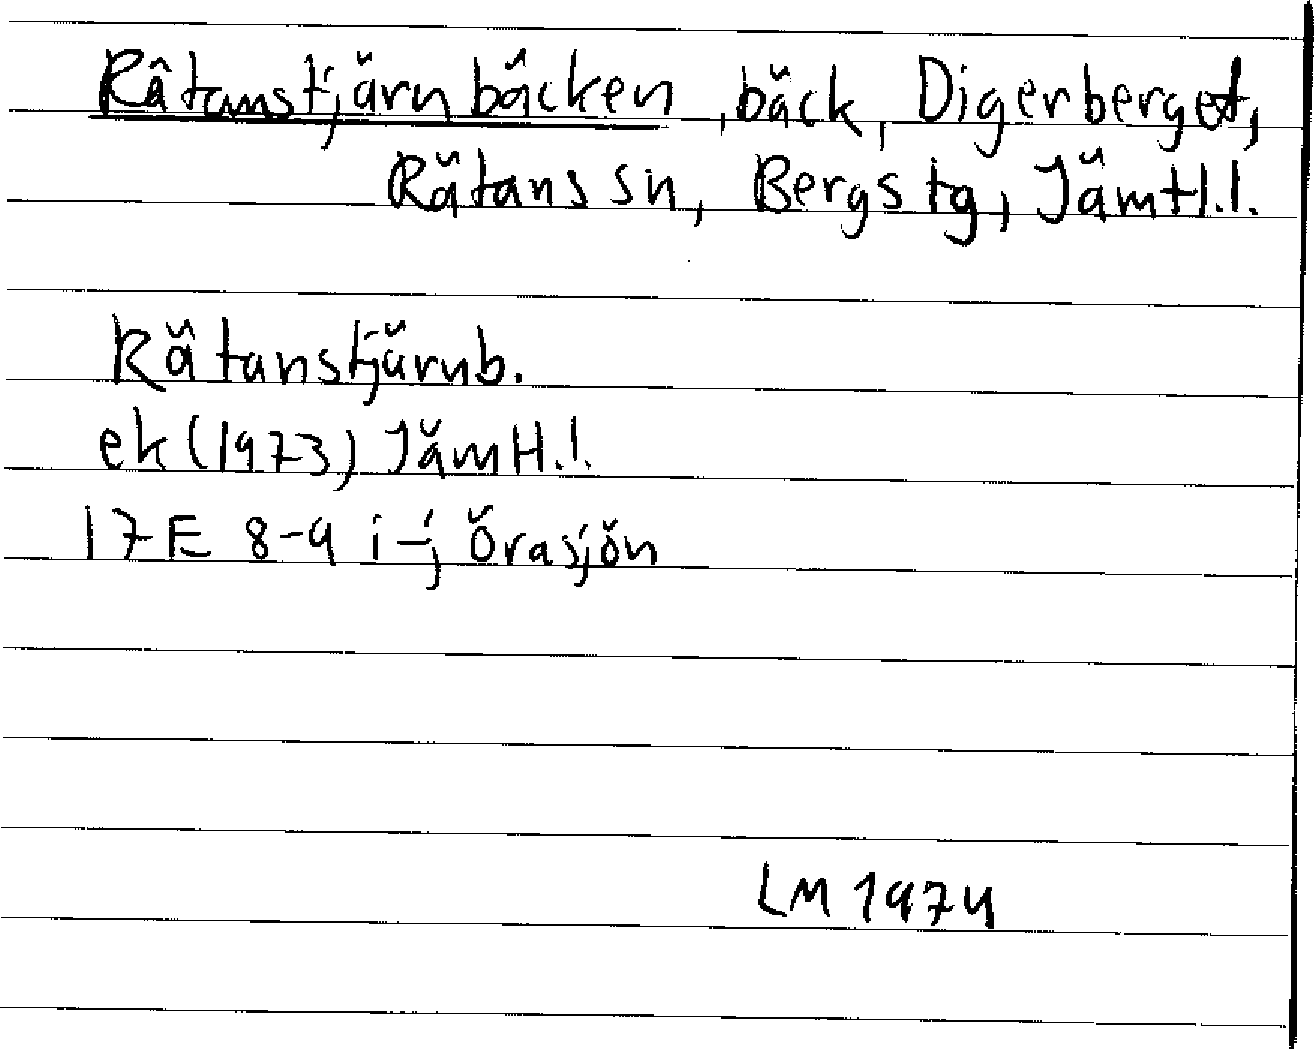 Rätanstjärnbäcken, bäck, Digerberget,
Rätans sn, Bergs tg, Jämtl.l.
Rätanstjärnb.
ek (1973) Jämtl.l.
17E 8-9 i-j Örasjön
LM 1974